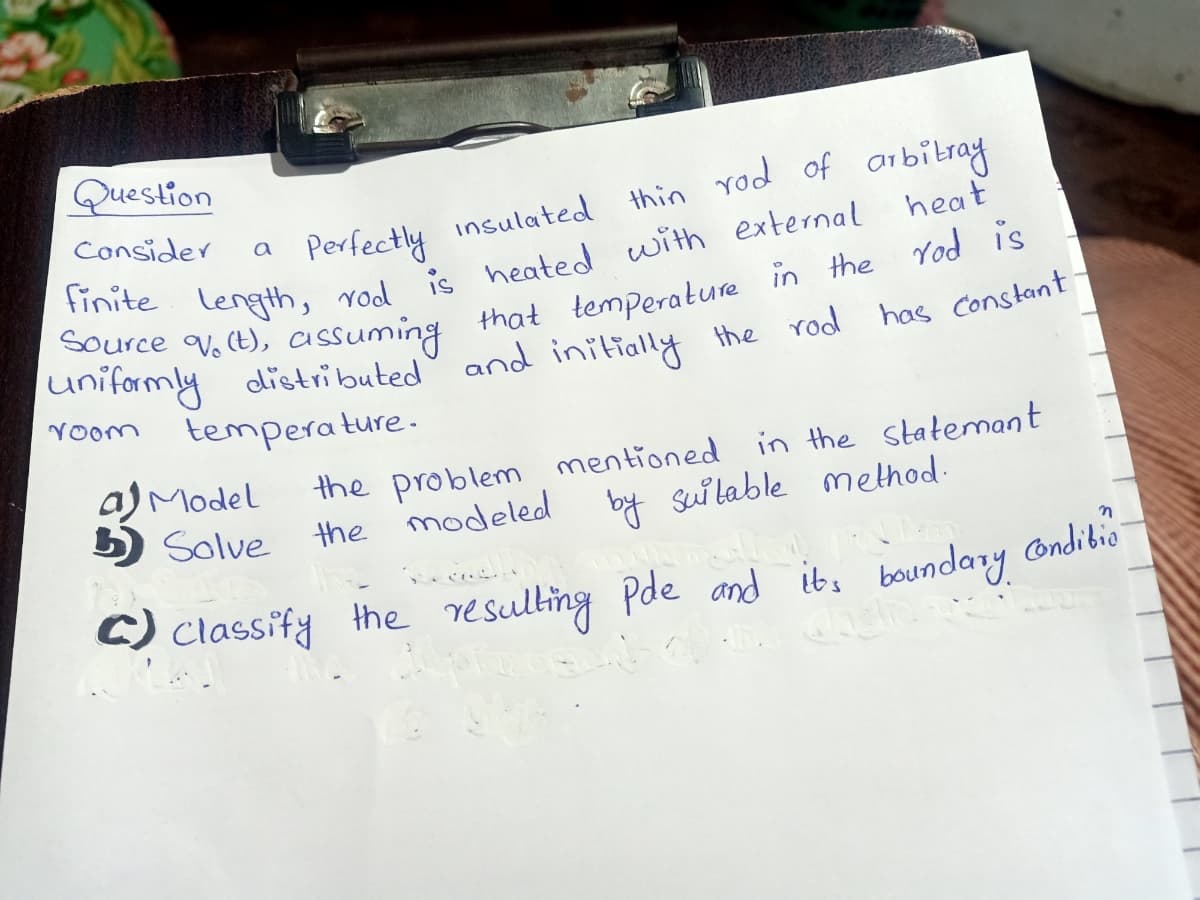 Question
Consider a Perfectly insulated thin rod of arbitray
finite length, rod is heated with external heat
Source q₀(t), assuming that temperature in the rod is
uniformly distributed and initially the rod has constant
room temperature.
a) Model the problem mentioned in the statemant
b) Solve the modeled by suitable method.
c) classify the resulting Pde and its boundary Condition